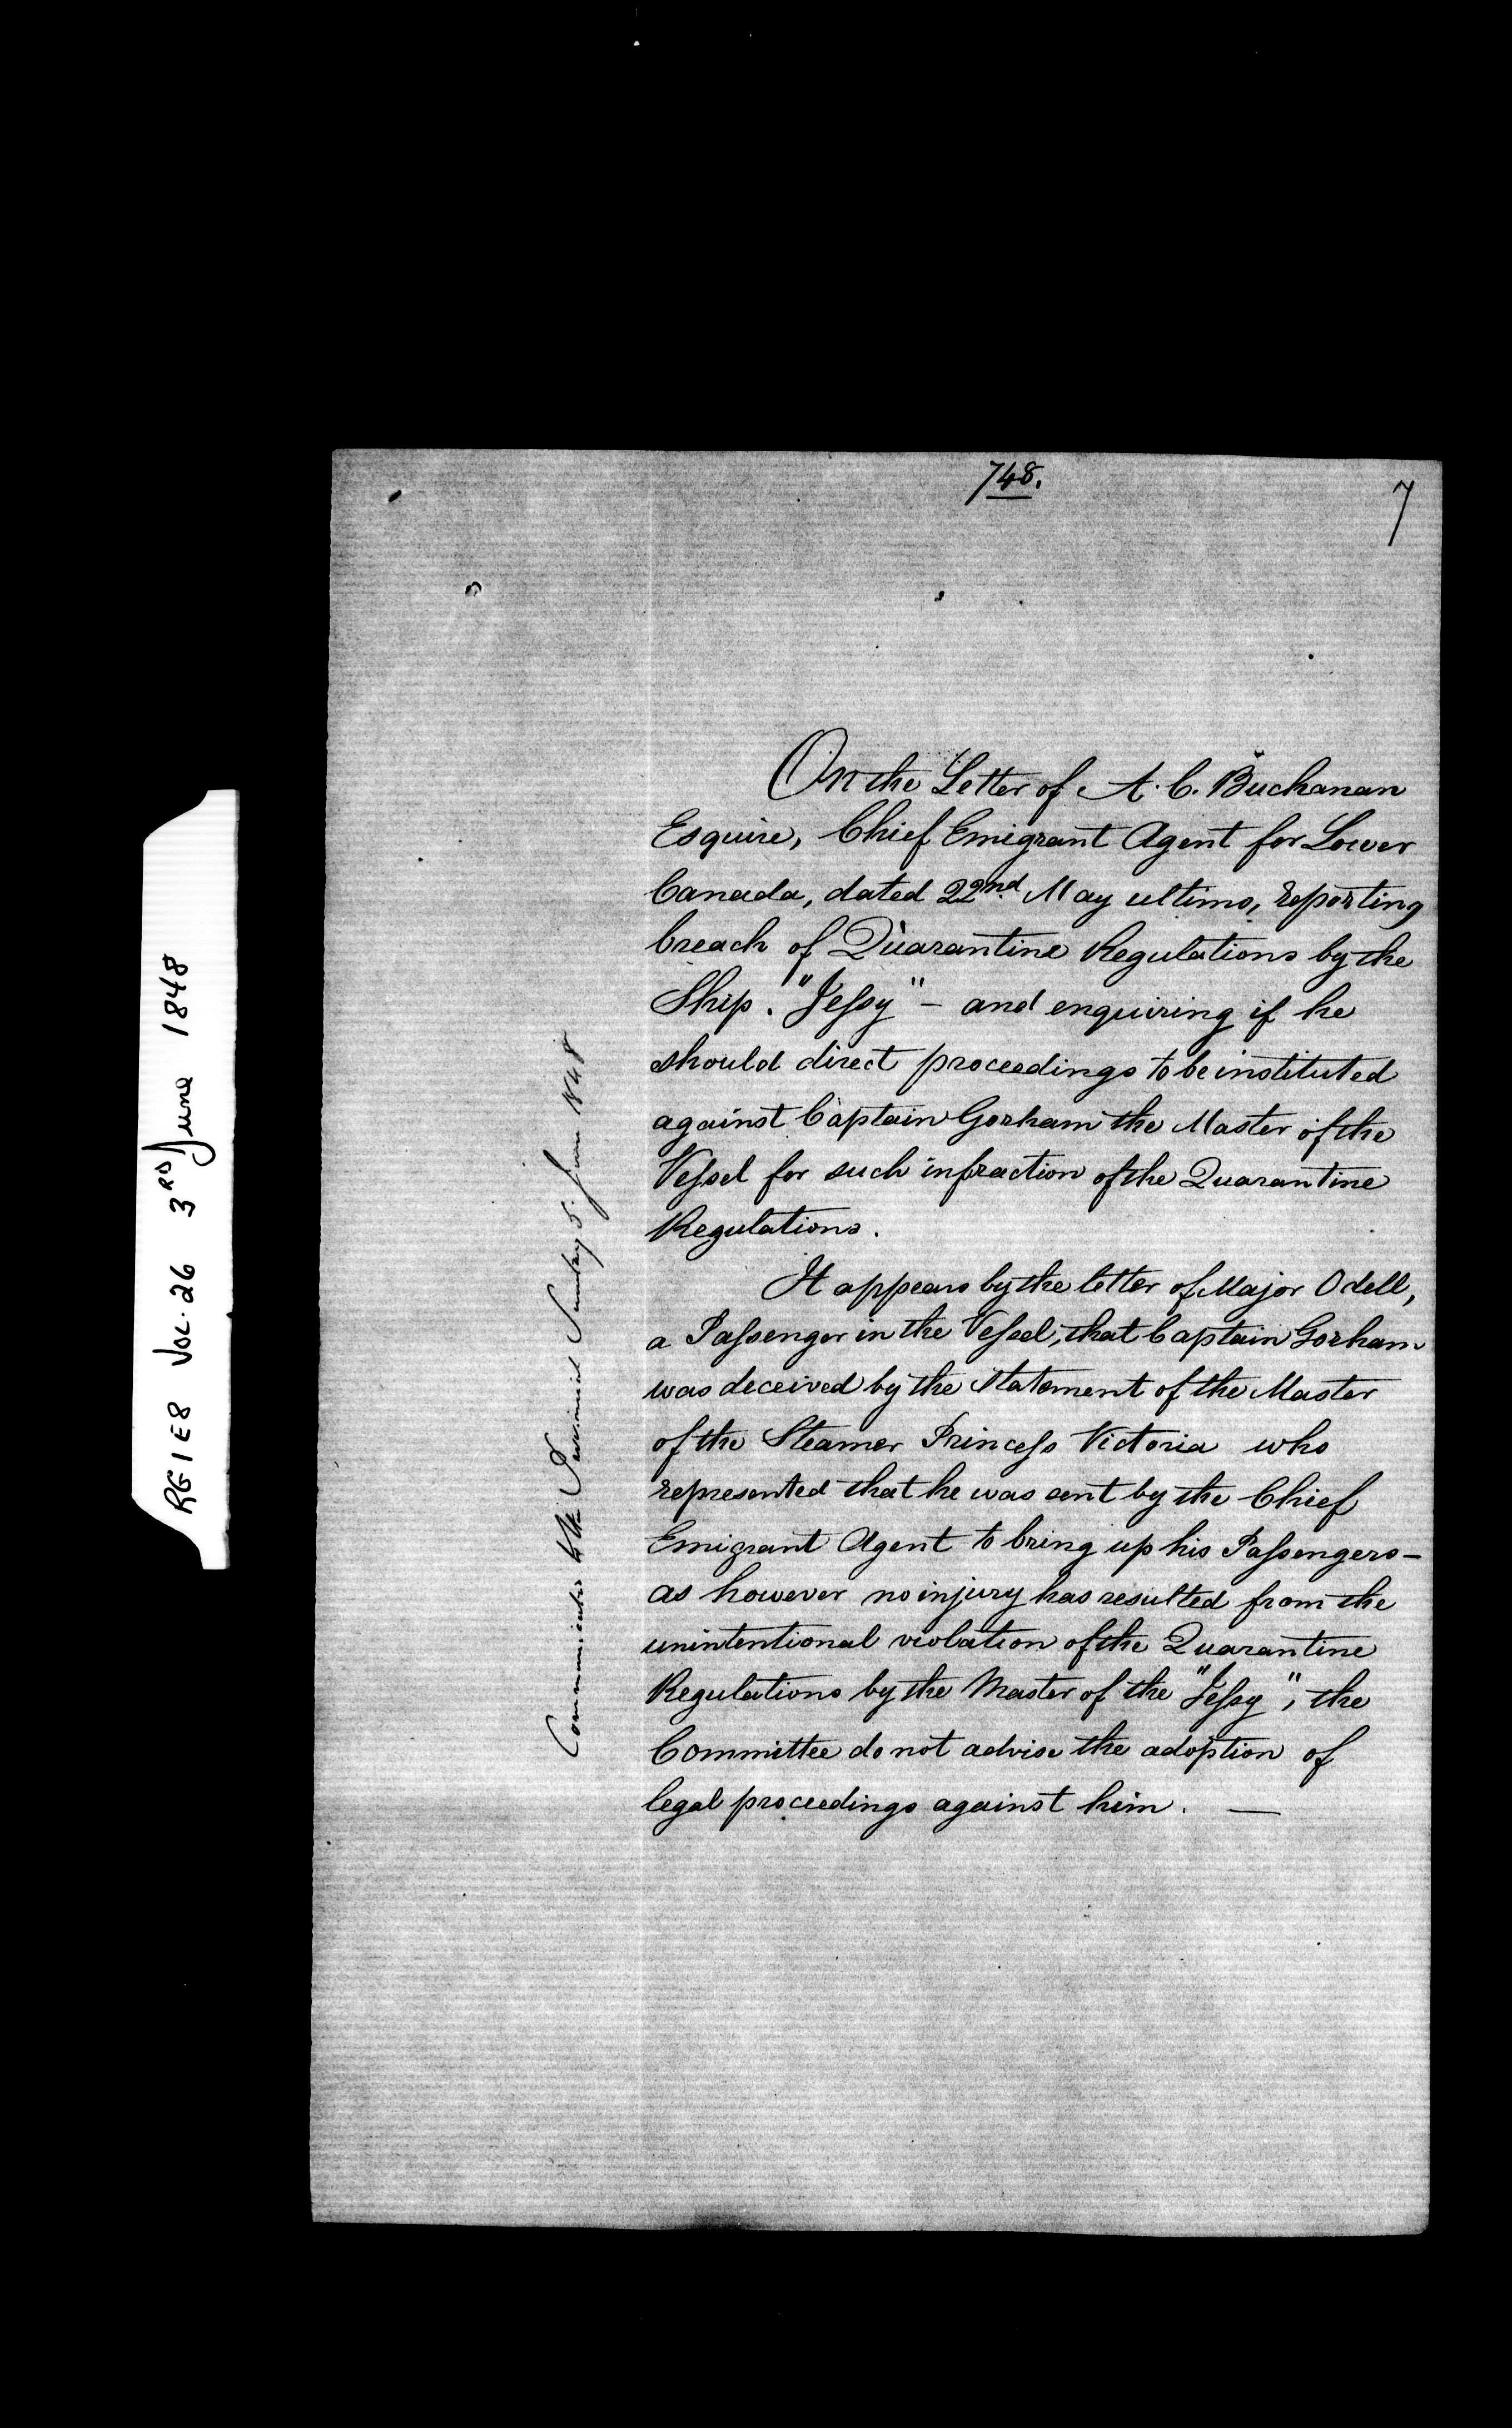 748.
7
On the Letter of A. C. Buchanan
Esquire, Chief Emigrant Agent for Lower
Canada, dated 22nd May ultimo, reporting
breach of Quarantine Regulations by the
Ship. "Jeſsy" – and enquiring if he
should direct proceedings to be instituted
against Captain Gorham the Master of the
Veſsel for such infraction of the Quarantine
Regulations.
It appears by the letter of Major Odell,
a Paſsenger in the Veſsel, that Captain Gorham
was deceived by the statement of the Master
of the Steamer Princeſs Victoria who
represented that he was sent by the Chief
Emigrant Agent to bring up his Paſsengers –
as however no injury has resulted from the
unintentional violation of the Quarantine
Regulations by the Master of the "Jeſsy", the
Committee do not advise the adoption of
legal proceedings against him. —
Communicated to the Provincial Secretary 5. June 1848
RG 1 E8 VOL. 26 3RD June 1848